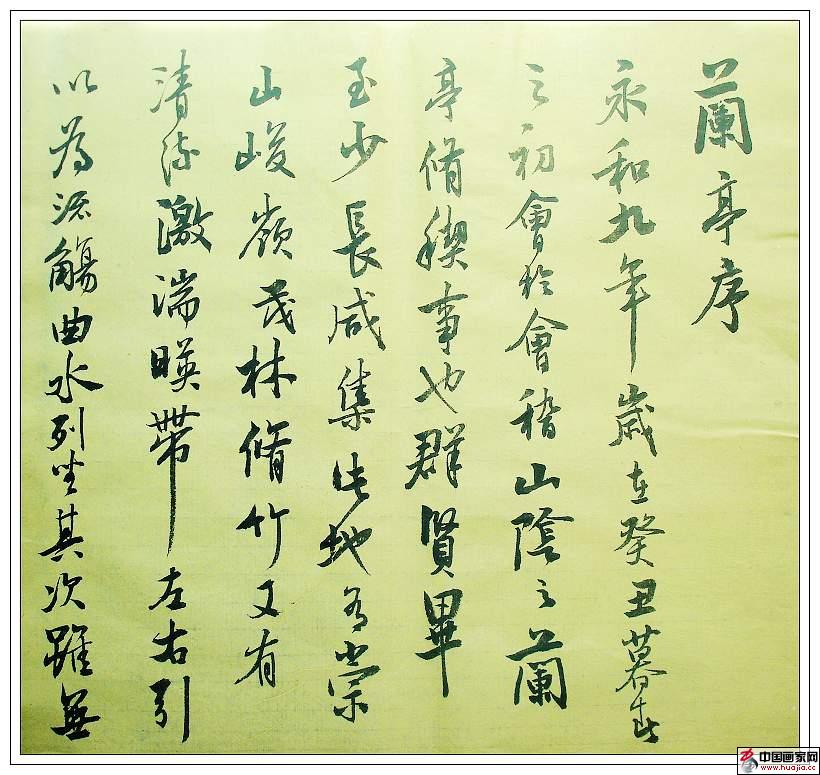 蘭亭序
永和九年歲在癸丑暮春
之初會於會稽山陰之蘭
亭脩稧事也群賢畢
至少長咸集此地有崇
山峻嶺茂林脩竹又有
清流激湍暎帶左右引
以為流觴曲水列坐其次雖無
中国画家网
www.huajia.cc